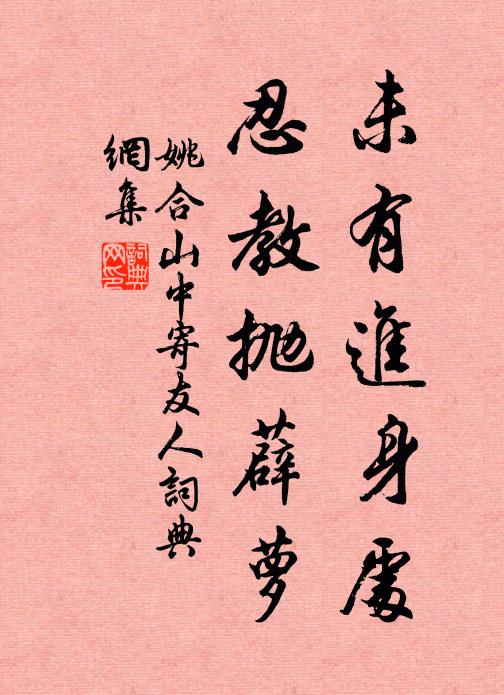 未有進身處
忍教拋薜萝
姚合山中寄友人詞典
網集
詞典
网印